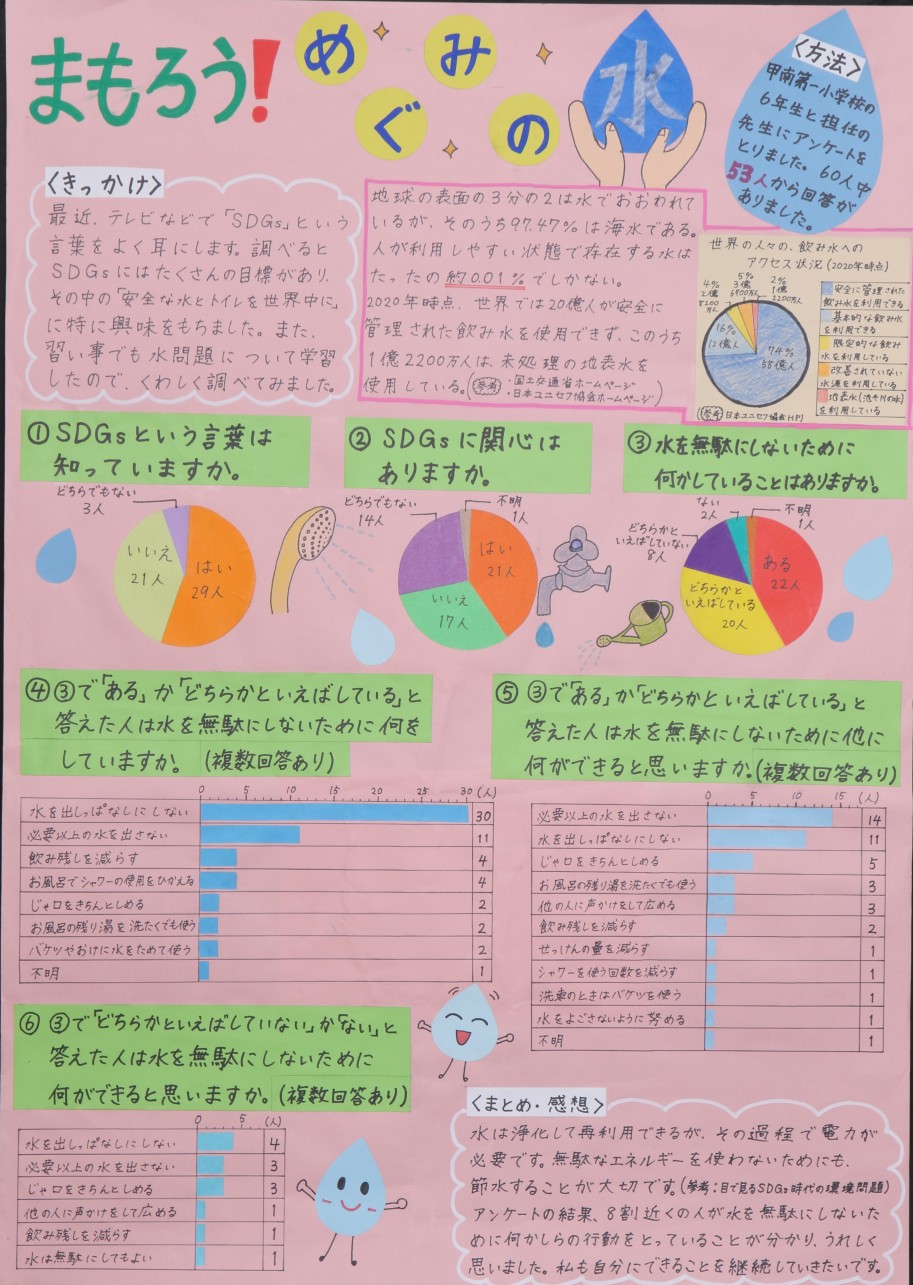 まもろう!
めぐみの
水
〈方法〉
甲南第一小学校の
6年生と担任の
先生にアンケートを
とりました。60人中
53人から回答が
ありました。
〈きっかけ〉
最近、テレビなどで「SDGs」という
言葉をよく耳にします。調べると
SDGsにはたくさんの目標があり、
その中の「安全な水とトイレを世界中に」
に特に興味をもちました。また、
習い事でも水問題について学習
したので、くわしく調べてみました。
地球の表面の3分の2は水でおおわれて
いるが、そのうち97.47%は海水である。
人が利用しやすい状態で存在する水は
たったの約0.01%でしかない。
2020年時点、世界では20億人が安全に
管理された飲み水を使用できず、このうち
1億2200万人は、未処理の地表水を
使用している。(参考・国土交通省ホームページ
・日本ユニセフ協会ホームページ)
世界の人々の、飲み水への
アクセス状況(2020年時点)
4%
2億
8200万人
5%
3億
6900万人
2%
1億
2200万人
16%
12億人
74%
58億人
安全に管理された
飲み水を利用できる
基本的な飲み水
を利用できる
限定的な飲み
水を利用している
改善されていない
水源を利用している
地表水(池や川の水)
を利用している
(参考 日本ユニセフ協会HP)
①SDGsという言葉は
知っていますか。
どちらでもない
3人
いいえ
21人
はい
29人
② SDGsに関心は
ありますか。
どちらでもない
14人
不明
1人
はい
21人
いいえ
17人
③水を無駄にしないために
何かしていることはありますか。
ない
2人
不明
1人
どちらかと
いえばしていない
8人
ある
22人
どちらかと
いえばしている
20人
④③で「ある」か「どちらかといえばしている」と
答えた人は水を無駄にしないために何を
していますか。(複数回答あり)
0 5 10 15 20 25 30(人)
水を出しっぱなしにしない 30
必要以上の水を出さない 11
飲み残しを減らす 4
お風呂でシャワーの使用をひかえる 4
じゃ口をきちんとしめる 2
お風呂の残り湯を洗たくでも使う 2
バケツやおけに水をためて使う 2
不明 1
⑤③で「ある」か「どちらかといえばしている」と
答えた人は水を無駄にしないために他に
何ができると思いますか。(複数回答あり)
0 5 10 15 (人)
必要以上の水を出さない 14
水を出しっぱなしにしない 11
じゃ口をきちんとしめる 5
お風呂の残り湯を洗たくでも使う 3
他の人に声かけをして広める 3
飲み残しを減らす 2
せっけんの量を減らす 1
シャワーを使う回数を減らす 1
洗車のときはバケツを使う 1
水をよごさないように努める 1
不明 1
⑥ ③で「どちらかといえばしていない」か「ない」と
答えた人は水を無駄にしないために
何ができると思いますか。(複数回答あり)
0 5 (人)
水を出しっぱなしにしない 4
必要以上の水を出さない 3
じゃ口をきちんとしめる 3
他の人に声かけをして広める 1
飲み残しを減らす 1
水は無駄にしてもよい 1
〈まとめ・感想〉
水は浄化して再利用できるが、その過程で電力が
必要です。無駄なエネルギーを使わないためにも、
節水することが大切です。(参考:目で見るSDGs時代の環境問題)
アンケートの結果、8割近くの人が水を無駄にしないた
めに何かしらの行動をとっていることが分かり、うれしく
思いました。私も自分にできることを継続していきたいです。